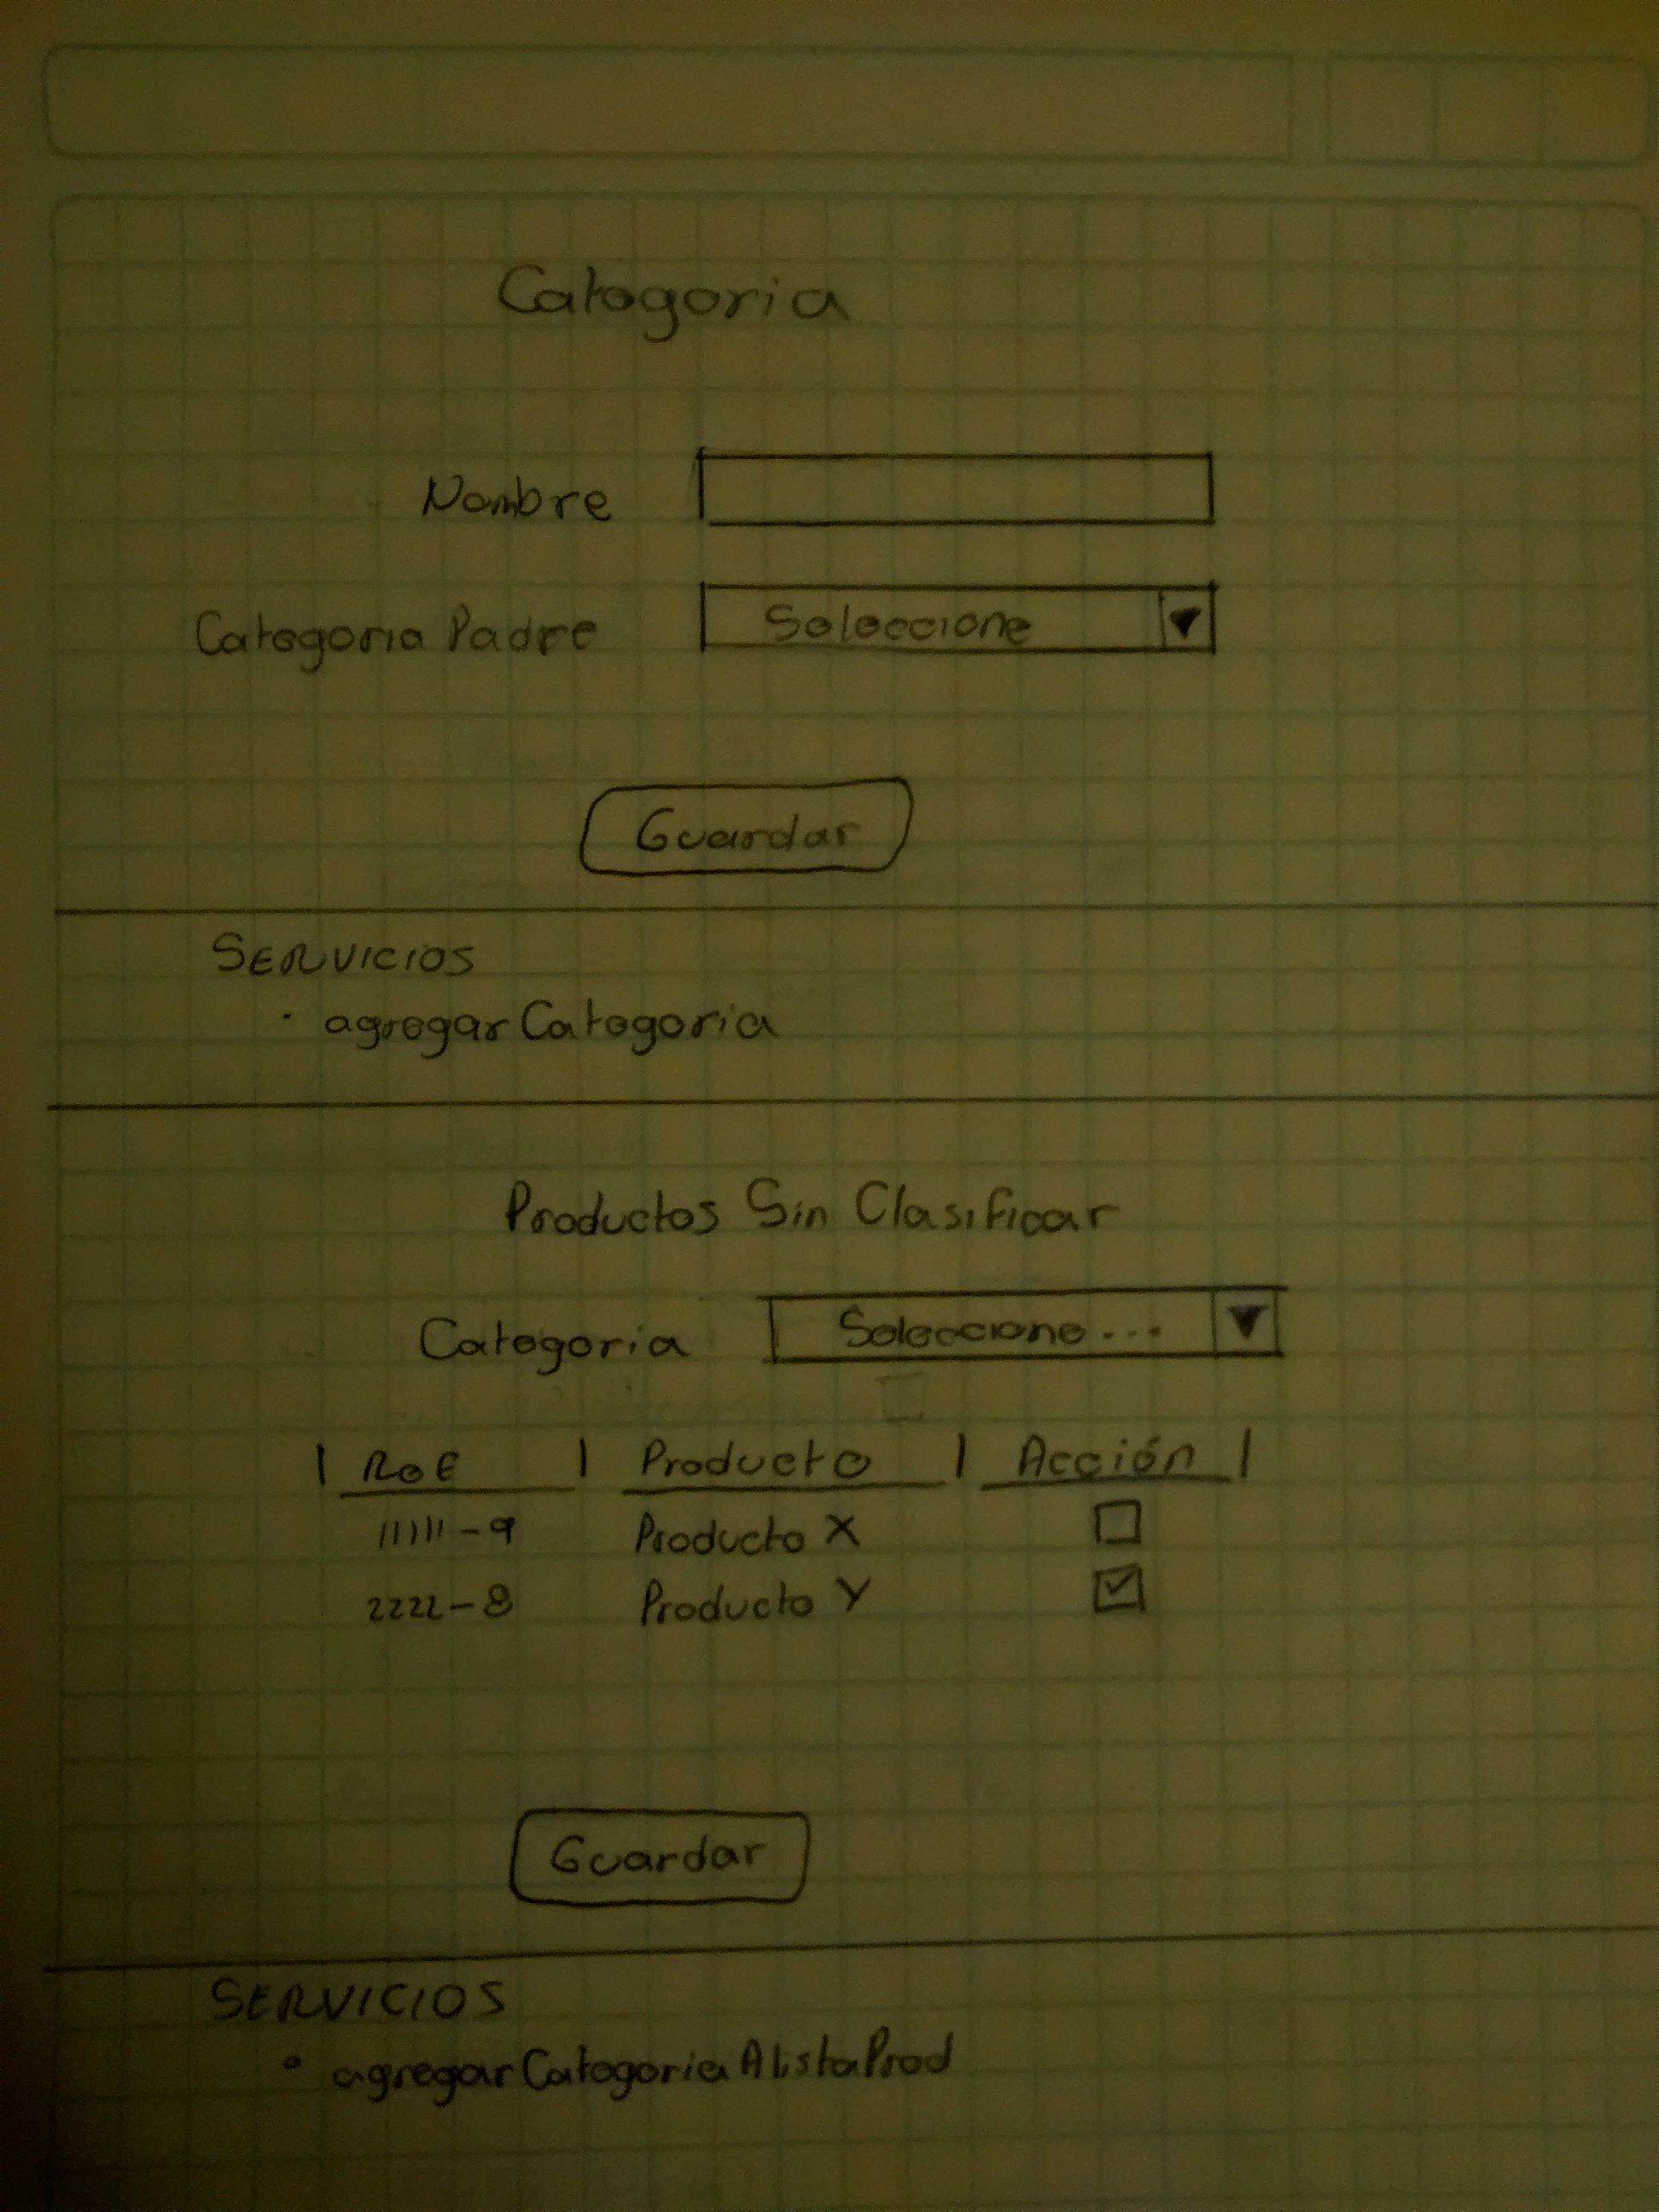 Categoria
Nombre
Categoria Padre Seleccione
Guardar
SERVICIOS
· agregarCategoria
Productos Sin Clasificar
Categoria Seleccione ...
| Ref | Producto | Acción |
111111-9 Producto X
2222-8 Producto Y
Guardar
SERVICIOS
• agregarCategoriaAlistaProd